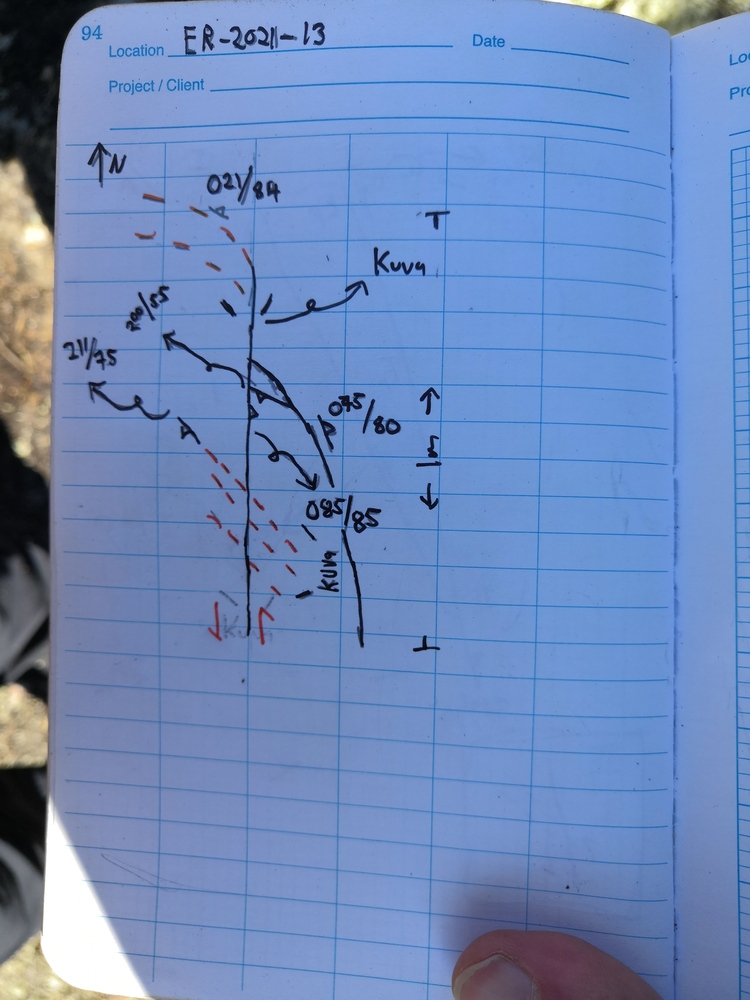 94
Location ER-2021-13 Date
Project / Client
N
021/84
Kuva
211/75
075/80
1m
085/85
Kuva